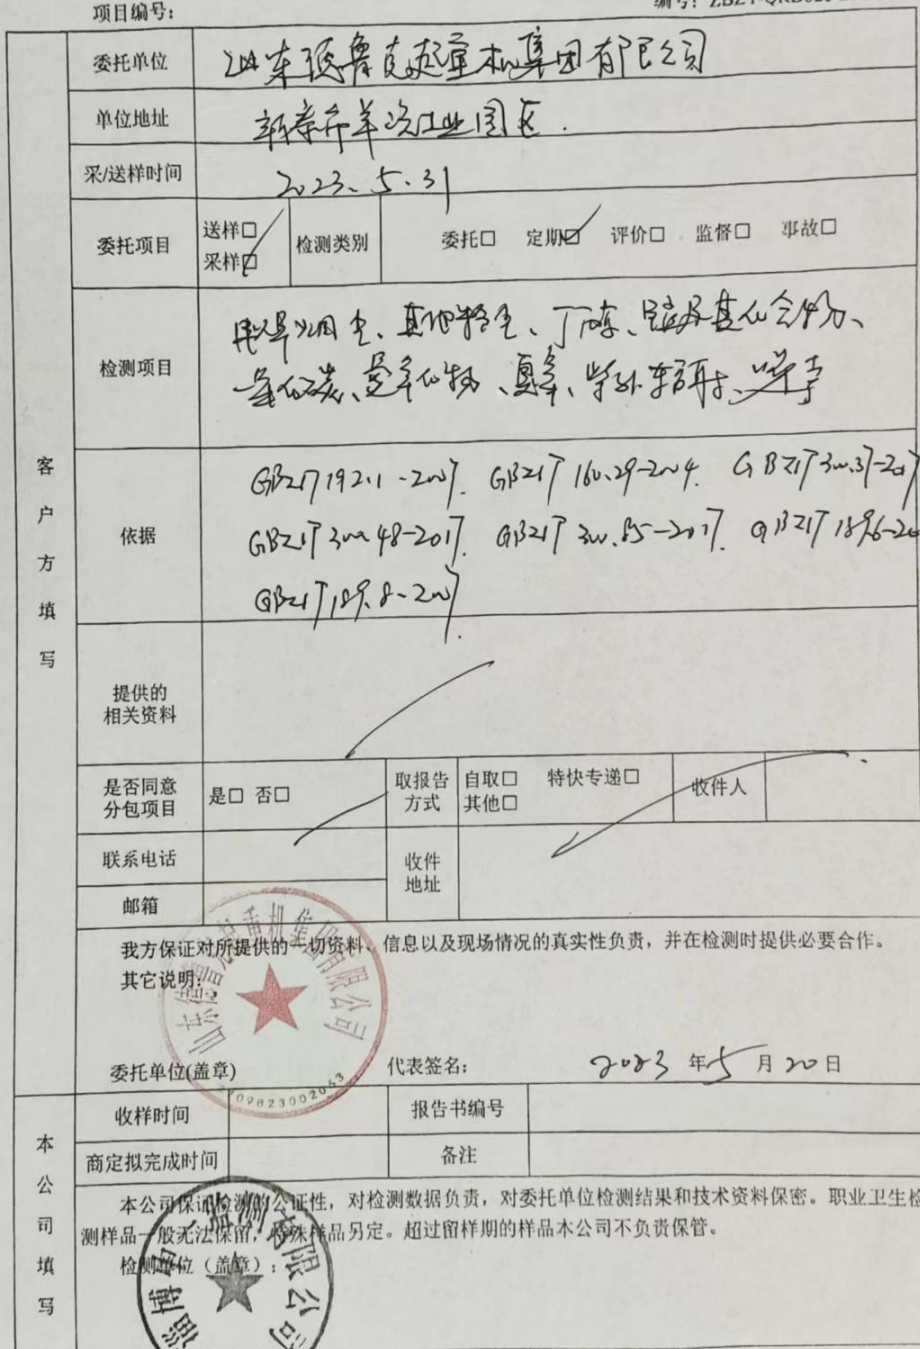 项目编号：
编号：ZBZY-QRD
委托单位 山东德鲁克起重机集团有限公司
单位地址 新泰市羊流工业园区.
采/送样时间 2023.5.31
委托项目 送样□ 采样☑ 检测类别 委托□ 定期☑ 评价□ 监督□ 事故□
检测项目 电焊烟尘、其他粉尘、丁醇、锰及其化合物、
氧化碳、氮氧化物、臭氧、紫外辐射、噪声
客户方填写
依据 GBZ/T 192.1-2007. GBZ/T 160.29-2004. GBZ/T 300.37-2017
GBZ/T 300.48-2017. GBZ/T 300.85-2017. GBZ/T 189.6-20
GBZ/T 189.8-2007.
提供的
相关资料
是否同意
分包项目 是□ 否□ 取报告
方式 自取□ 特快专递□
其他□ 收件人
联系电话 收件
地址
邮箱
我方保证对所提供的一切资料、信息以及现场情况的真实性负责，并在检测时提供必要合作。
其它说明：
山东德鲁克起重机集团有限公司
委托单位(盖章) 代表签名： 2023 年 5 月 20 日
3709823002043
收样时间 报告书编号
商定拟完成时间 备注
本公司填写
本公司保证检测的公证性，对检测数据负责，对委托单位检测结果和技术资料保密。职业卫生检
测样品一般无法保留，特殊样品另定。超过留样期的样品本公司不负责保管。
检测单位（盖章）：
淄博 检测 有限公司